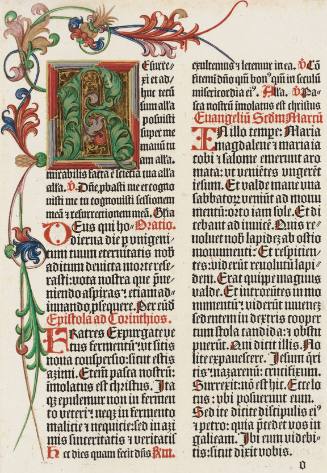 Esurre=
xi et ad=
huc tecū
sum alľa
posuisti
super me
manū tu
am alľa.
mirabilis facta ē scientia tua alľa
alľa. V̷ Dñe ꝓbasti me et cogno
uisti me tu cognouisti sessionem
meā ⁊ resurrectionem meā. Gľia
Deus qui ho= Oratio.
dierna die ꝑ vnigeni
tum tuum eternitatis nob̄
aditum deuicta morte rese
rasti: vota nostra que p̄ue
niendo aspiras: etiam ad=
iuuando ꝓsequere. Per eūd
Epistola ad Corinthios.
Fratres Expurgate ve
tus fermentū: vt sitis
noua conspersio: sicut estis
azimi. Etem̄ pasca nostrū:
imolatus est christus. Itaq̄
epulemur non in fermento
veteri: neq̄ in fermento
malicie ⁊ nequicie: sed in azi
mis sinceritatis ⁊ veritatis
Hec dies quam fecit dñs Rm.
exultemus ⁊ letemur in ea. V̷ Cō
fitemi dño qm̄ bon⁹ qm̄ in seculū
misericordia ei⁹. Alľa. V̷ Pa
sca nostrū imolatus est christus
Euangeliū Scďm Marcū
In illo tempe: Maria
magdalene ⁊ maria ia
cobi ⁊ salome emerunt aro
mata: vt veniētes vngerēt
iesum. Et valde mane vna
sabbatoꝝ veniūt ad monu
mentū: orto iam sole. Et di
cebant ad inuicē. Quis re
uoluet nob̄ lapidē ab ostio
monumenti: Et respicien=
tes: viderūt reuolutū lapi
dem. Erat quipe magnus
valde. Et introeūtes in mo
numentū: viderūt iuuenē
sedentem in dextris cooper
tum stola candida: ⁊ obstu
puerūt. Qui dicit illis. No
lite expauescere. Jesum q̄ri
tis: nazarenū: crucifixum.
Surrexit: nō est hic. Ecce lo
cus: vbi posuerunt eum.
Sed ite dicite discipulis ei⁹
⁊ petro: quia p̄cedet vos in
galileam. Ibi eum videbi=
tis: sicut dixit vobis.
o